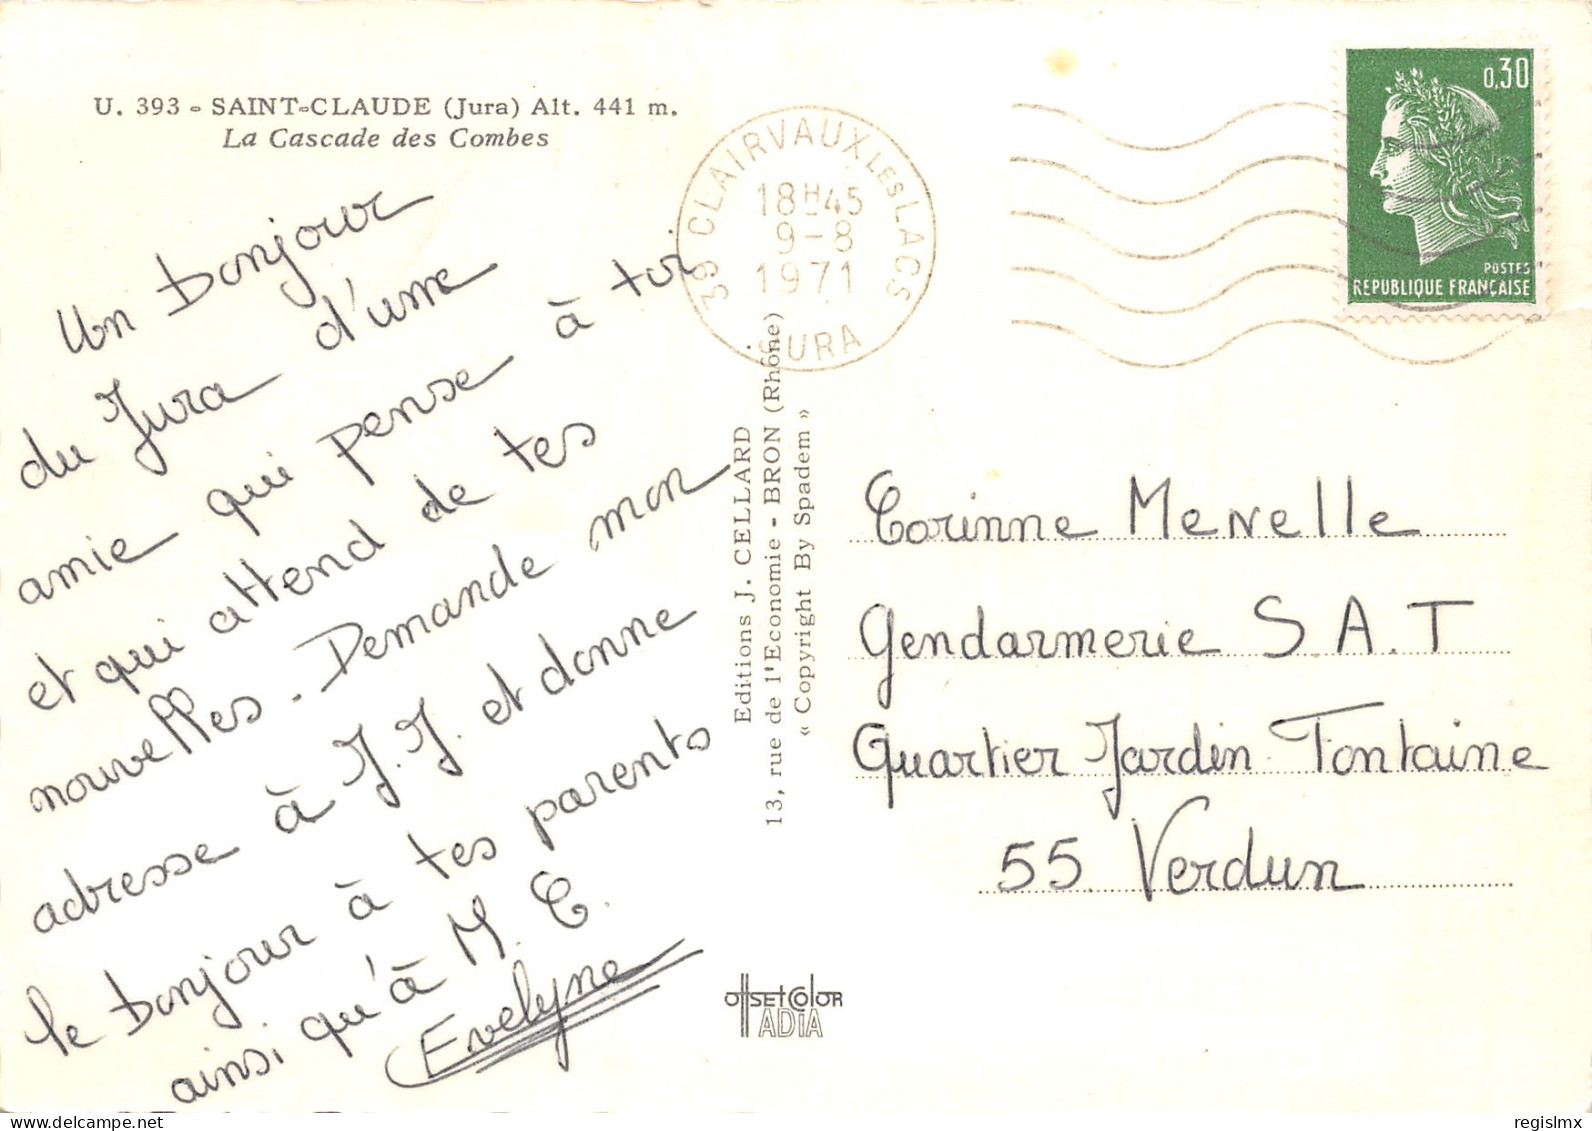 U. 393 - SAINT-CLAUDE (Jura) Alt. 441 m.
La Cascade des Combes
Un bonjour
du Jura d'une
amie qui pense à toi
et qui attend de tes
nouvelles. Demande mon
adresse à J. J. et donne
le bonjour à tes parents
ainsi qu'à M. C.
Evelyne
39 CLAIRVAUX LES LACS
18H45
9-8
1971
JURA
0,30
POSTES
REPUBLIQUE FRANÇAISE
Editions J. CELLARD
13, rue de l'Economie - BRON (Rhône)
« Copyright By Spadem »
Corinne Menelle
Gendarmerie S.A.T
Quartier Jardin Fontaine
55 Verdun
OFFSET COLOR
ADIA
www.delcampe.net
regislmx